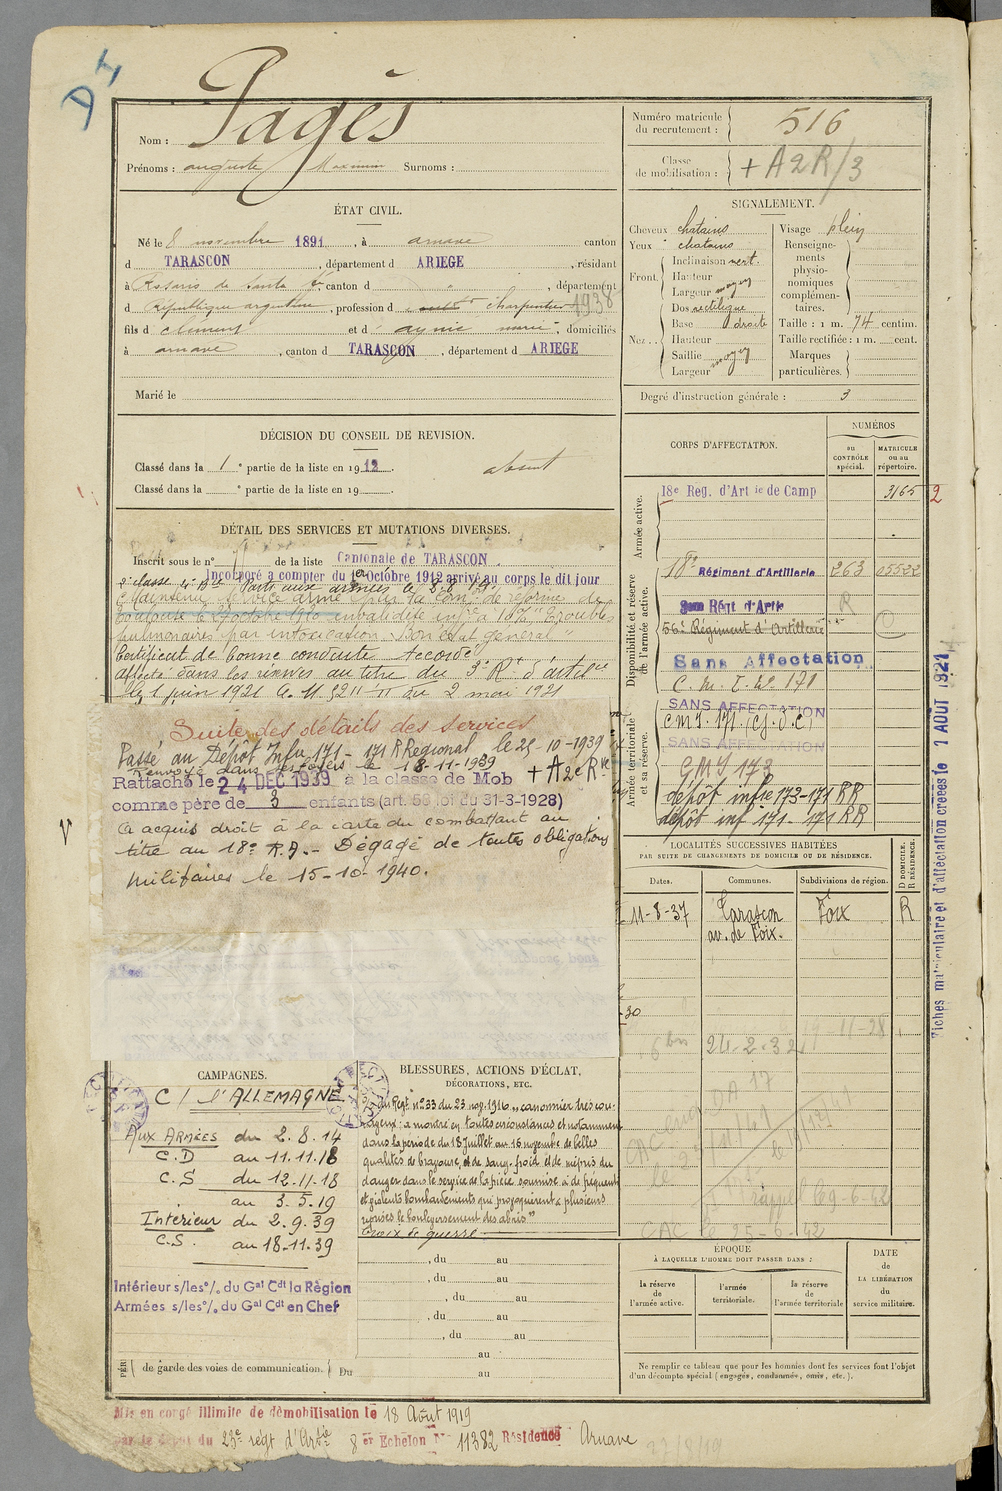 Pagès
Nom :
Prénoms : auguste Maximin Surnoms :
Numéro matricule du recrutement : 516
Classe de mobilisation : + A2R/3
ÉTAT CIVIL.
Né le 8 novembre 1891, à arnave canton
d TARASCON, département d ARIEGE, résidant
à Rosario de Santa fé, canton d " , département
d République argentine, profession de charpentier 1938
fils d clément et d aynié marie, domiciliés
à arnave, canton d TARASCON, département d ARIEGE
Marié le
SIGNALEMENT.
Cheveux chatains
Yeux chatains
Front. Inclinaison vert.
Hauteur
Largeur moyen
Nez Dos rectiligne
Base droite
Hauteur
Saillie moyen
Largeur
Visage plein
Renseignements physionomiques complémentaires.
Taille : 1 m. 74 centim.
Taille rectifiée : 1 m. cent.
Marques particulières.
Degré d'instruction générale : 3
DÉCISION DU CONSEIL DE REVISION.
Classé dans la 1e partie de la liste en 1912. absent
Classé dans la e partie de la liste en 19
DÉTAIL DES SERVICES ET MUTATIONS DIVERSES.
Inscrit sous le n° de la liste Cantonale de TARASCON
Incorporé à compter du 1er Octobre 1912 arrivé au corps le dit jour
2e classe Parti aux armées le 2-8-14
Maintenu service armé par la Com. de réforme de
Toulouse le octobre 1920 invalidité infre à 10% "Troubles
pulmonaires par intoxication. Bon état général"
Certificat de bonne conduite Accordé
affecté dans les réserves au titre du 3e Rt d'artie
le 1 juin 1921 du 2 mai 1921
Suite des détails des services
Passé au Dépôt Infie 171 - 171 R Régional le 25-10-1939
Renvoyé dans ses foyers le 18-11-1939
Rattaché le 24 DEC 1939 à la classe de Mob + A2e Rve
comme père de 3 enfants (art. 58 loi du 31-3-1928)
a acquis droit à la carte du combattant au
titre au 18e R.A. - Dégagé de toutes obligations
militaires le 15-10-1940.
CORPS D'AFFECTATION.
NUMÉROS
au CONTRÔLE spécial.
MATRICULE ou au répertoire.
Armée active.
18e Reg. d'Art ie de Camp 3165 2
Disponibilité et réserve de l'armée active.
18e Régiment d'Artillerie 263 05522
Régt d'Artie R
56e Régiment d'Artillerie
Sans Affectation
Armée territoriale et sa réserve.
C. M. I. No 171
SANS AFFECTATION
CMI. 171. (G.D.C)
SANS AFFECTATION
GMI 173
dépôt infie 173-171 RR
dépôt inf 171- 171 RR
Fiches matriculaire et d'affectation créées le 1 AOUT 1921
LOCALITÉS SUCCESSIVES HABITÉES
PAR SUITE DE CHANGEMENTS DE DOMICILE OU DE RÉSIDENCE.
Dates. Communes. Subdivisions de région. D DOMICILE. R RÉSIDENCE.
11-8-37 Tarascon Foix R
av. de Foix.
24-2-32
rappel le 9-6-42
CAC le 25-6-42
CAMPAGNES.
C / l'ALLEMAGNE
Aux Armées du 2.8.14
C.D au 11.11.18
C.S du 12.11.18
au 3.5.19
Intérieur du 2.9.39
C.S. au 18.11.39
Intérieur s/les o/. du Gal Cdt la Région
Armées s/les o/. du Gal Cdt en Chef
de garde des voies de communication. Du
BLESSURES, ACTIONS D'ÉCLAT,
DÉCORATIONS, ETC.
du Regt no 33 du 23 nov. 1916 "canonnier très cou-
rageux ; a montré en toutes circonstances et notamment
dans la période du 18 Juillet au 16 novembre de belles
qualités de bravoure, et de sang-froid et de mépris du
danger dans le service de la pièce soumise à de fréquents
et violents bombardements qui provoquèrent à plusieurs
reprises le bouleversement des abris"
Croix de guerre.
, du au
, du au
, du au
, du au
, du au
au
au
ÉPOQUE
À LAQUELLE L'HOMME DOIT PASSER DANS :
la réserve de l'armée active.
l'armée territoriale.
la réserve de l'armée territoriale
DATE de LA LIBÉRATION du service militaire.
Ne remplir ce tableau que pour les hommes dont les services font l'objet
d'un décompte spécial (engagés, condamnés, omis, etc.).
Mis en congé illimité de démobilisation le 18 Août 1919
par le dépôt du 23e regt d'Artie 8 er Echelon N° 11382 Résidence Arnave 22/8/19